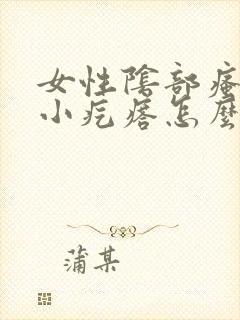 女性陰部瘙
小疙瘩怎麼
蒲某